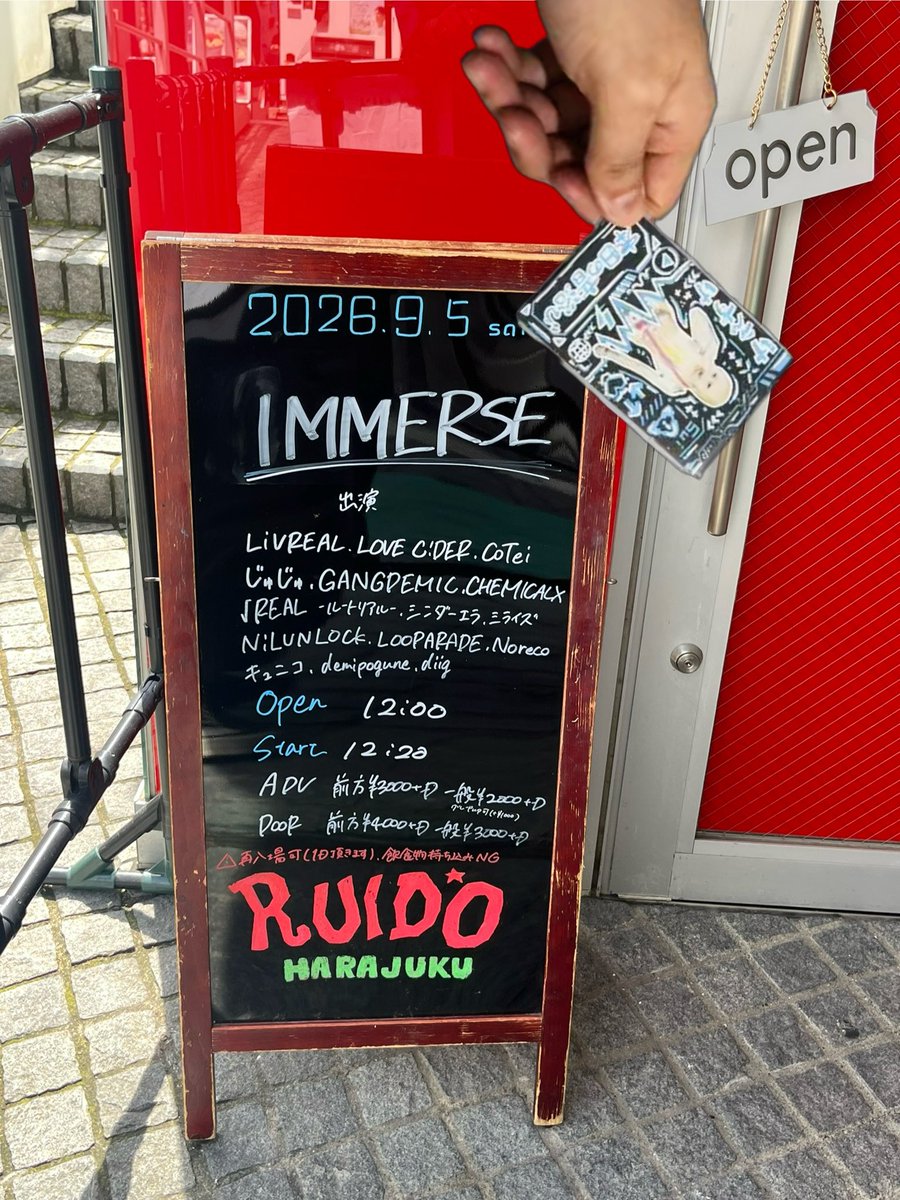 open
2026.9.5 sat
IMMERSE
出演
LiVREAL.LOVE CiDER.CoTei
じゅじゅ.GANGDEMIC.CHEMICALX
√REAL -ルートリアル-.シンダーエラ.ミライズ
NiLUNLOCK.LOOPARADE.Noreco
キュニコ.demipogune.diig
Open 12:00
Start 12:20
ADV 前方¥3000+D 一般¥2000+D
DOOR 前方¥4000+D 一般¥3000+D
⚠再入場可(1D頂きます).飲食物持ち込みNG
RUIDO
HARAJUKU